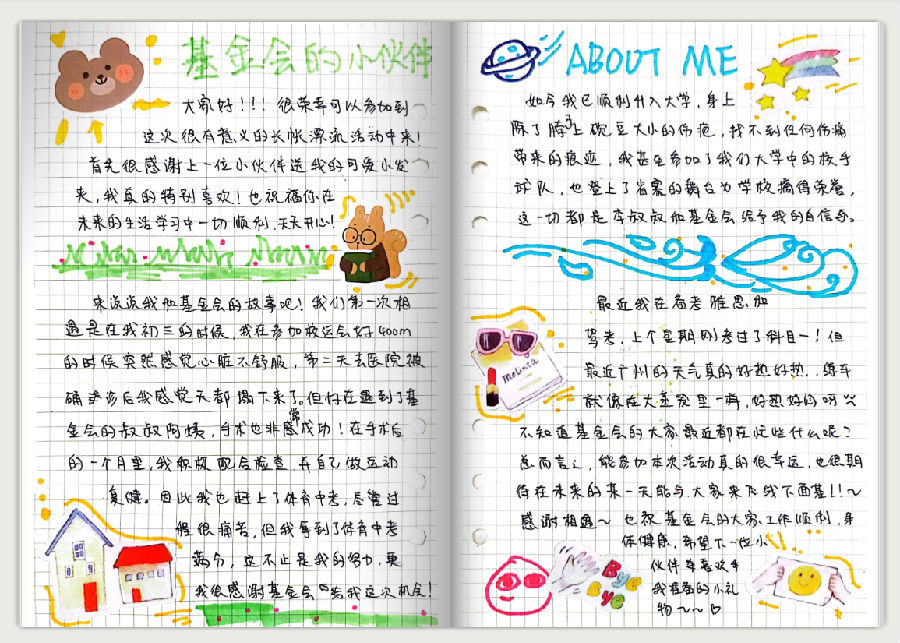 基金会的小伙伴
大家好!!! 很荣幸可以参加到
这次很有意义的长帐漂流活动中来!
首先很感谢上一位小伙伴送我的可爱小发
夹,我真的特别喜欢!也祝福你在
未来的生活学习中一切顺利,天天开心!
来说说我和基金会的故事吧!我们第一次相
遇是在我初三的时候,我在参加校运会好400m
的时候突然感觉心脏不舒服,第二天去医院被
确诊后我感觉天都塌下来了。但好在遇到了基
金会的叔叔阿姨,手术也非常感成功!在手术后
的一个月里,我积极配合检查,并自己做运动
复健。因此我也赶上了体育中考,尽管过
程很痛苦,但我拿到了体育中考
满分,这不止是我的努力,更
我很感谢基金会给我这次机会!
ABOUT ME
如今我已顺利升入大学,身上
除了胯上豌豆大小的伤疤,找不到任何伤痛
带来的痕迹,我甚至参加了我们大学中的
球队,也登上了省赛的舞台为学校摘得荣誉,
这一切都是李叔叔和基金会给予我的自信与。
最近我在备考雅思和
驾考,上个星期刚考过了科目一!但
最近广州的天气真的好热好热,练车
就像在大蒸笼里一样,好热好闷啊
不知道基金会的大家最近都在忙些什么呢?
总而言之,能参加本次活动真的很幸运,也很期
待在未来的某一天能与大家来飞线下面基!!~
感谢相遇~ 也祝基金会的大家工作顺利,身
体健康,希望下一位小
伙伴会喜欢我
我准备的小礼
物~~♡
Melinda
Bye
Bye